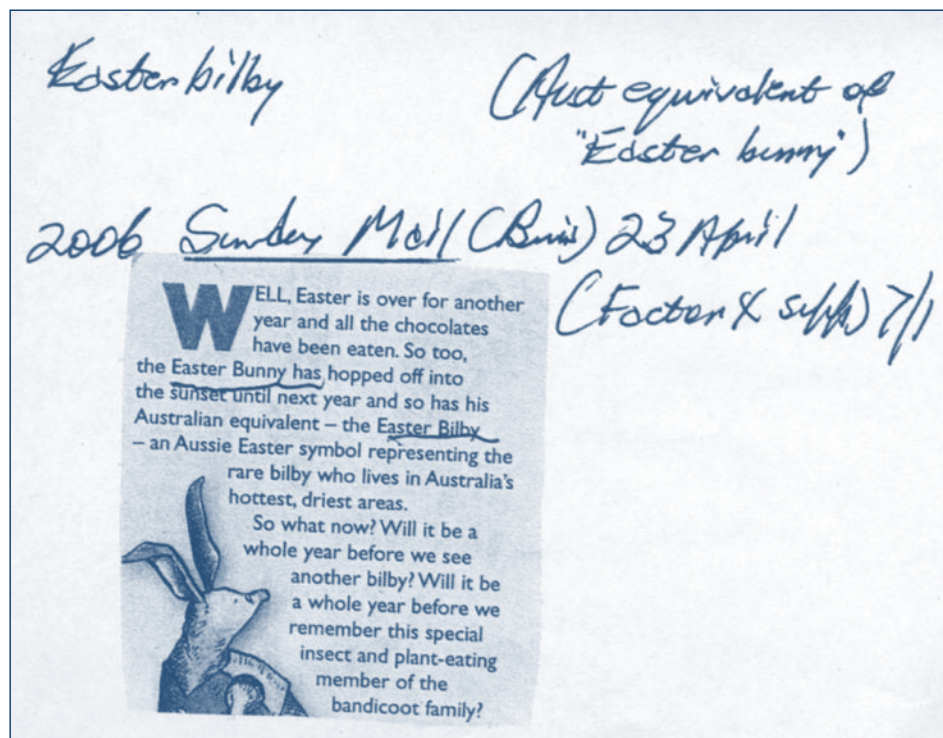 Easter bilby
(Aust equivalent of
"Easter bunny")
2006 Sunday Mail (Bris) 23 April
(Factor X supp) 7/1
WELL, Easter is over for another
year and all the chocolates
have been eaten. So too,
the Easter Bunny has hopped off into
the sunset until next year and so has his
Australian equivalent – the Easter Bilby
– an Aussie Easter symbol representing the
rare bilby who lives in Australia's
hottest, driest areas.
So what now? Will it be a
whole year before we see
another bilby? Will it be
a whole year before we
remember this special
insect and plant-eating
member of the
bandicoot family?